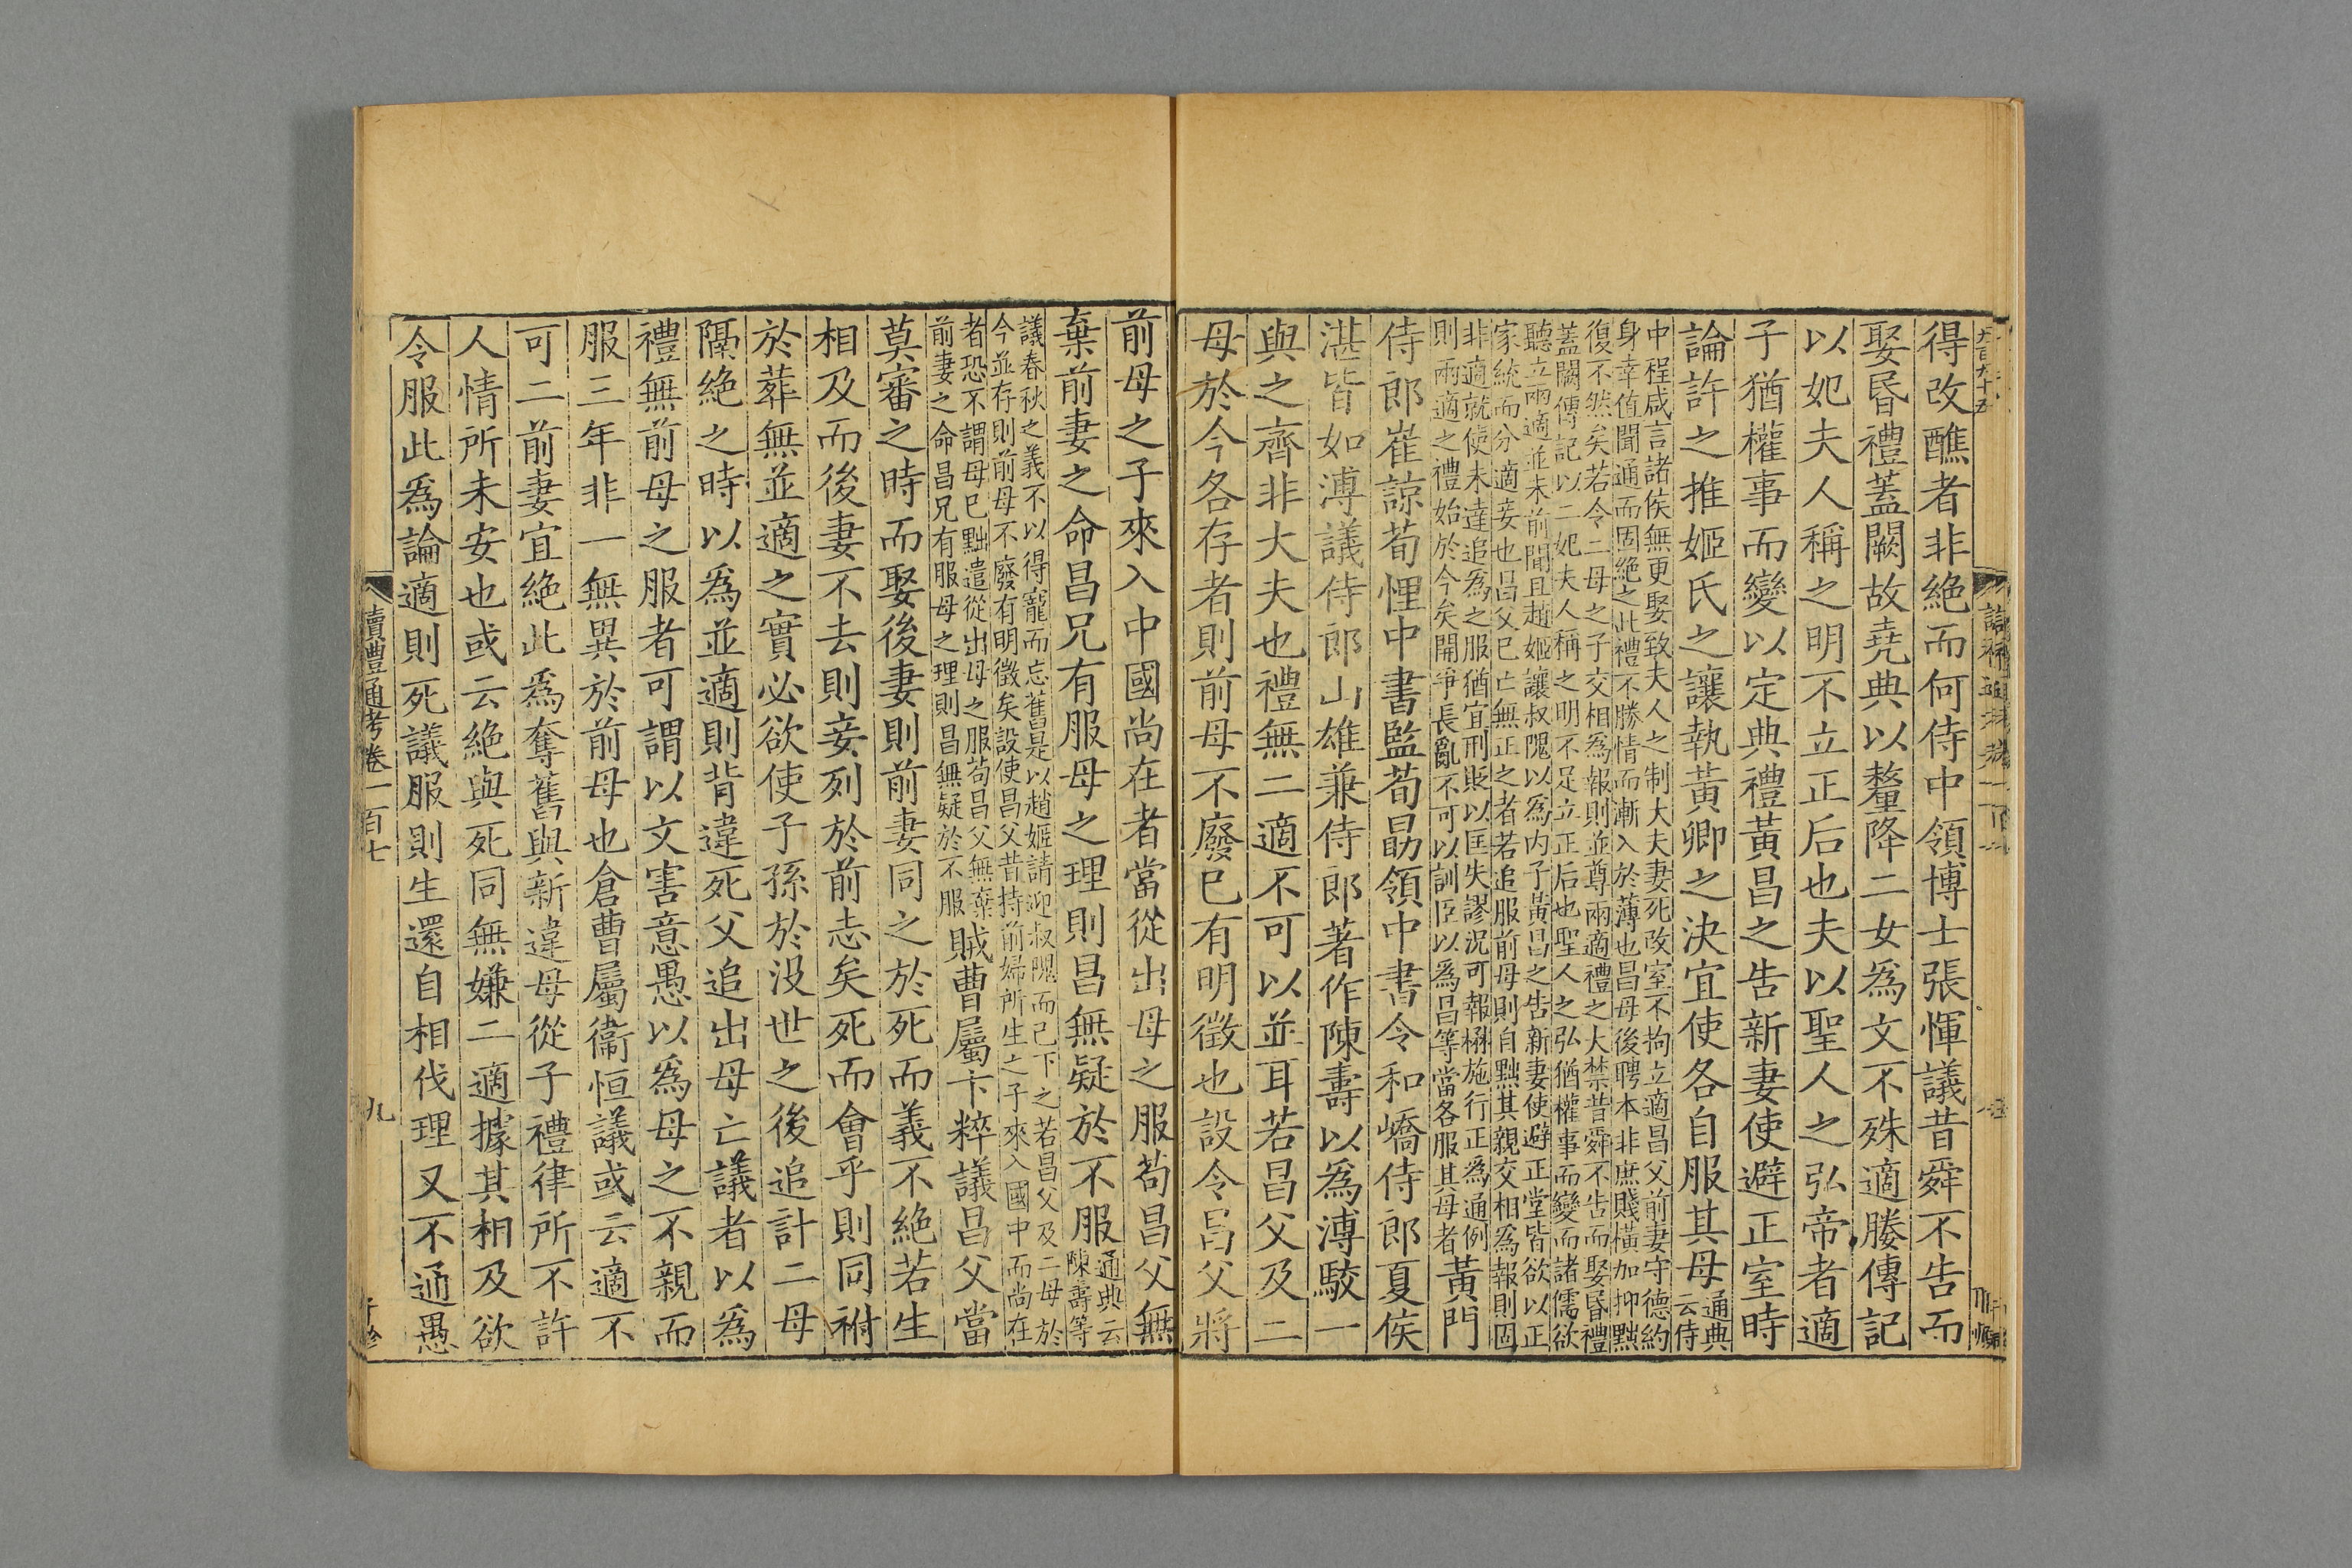 得改醮者非絶而何侍中領博士張惲議昔舜不告而
娶昬禮蓋闕故堯典以釐降二女爲文不殊適媵傳記
以妃夫人稱之明不立正后也夫以聖人之弘帝者適
子猶權事而變以定典禮黃昌之告新妻使避正室時
論許之推姬氏之讓執黃卿之決宜使各自服其母通典
云侍
中程咸言諸侯無更娶致夫人之制大夫妻死改室不拘立適昌父前妻守德約
身幸值聞通而固絶之此禮不勝情而漸入於薄也昌母後聘本非庶賤橫加抑黜
復不然矣若令二母之子交相爲報則並尊兩適禮之大禁昔舜不告而娶昬禮
蓋闕傳記以二妃夫人稱之明不足立正后也聖人之弘猶權事而變而諸儒欲
聽立兩適並未前聞且趙姬讓叔隗以爲内子黃昌之告新妻使避正堂皆欲以正
家統而分適妾也昌父已亡無正之者若追服前母則自黜其親交相爲報則固
非適就使未達追爲之服猶宜刑貶以匡失謬況可報楜施行正爲通例
則兩適之禮始於今矣開爭長亂不可以訓臣以爲昌等當各服其母者
黃門
侍郎崔諒荀悝中書監荀勗領中書令和嶠侍郎夏侯
湛皆如溥議侍郎山雄兼侍郎著作陳壽以爲溥駮一
與之齊非大夫也禮無二適不可以並耳若昌父及二
母於今各存者則前母不廢已有明徵也設令昌父將
前母之子來入中國尚在者當從出母之服茍昌父無
棄前妻之命昌兄有服母之理則昌無疑於不服通典云
陳壽等
議春秋之義不以得寵而忘舊是以趙姬請迎叔隗而已下之若昌父及二母於
今並存則前母不廢有明徵矣設使昌父昔持前婦所生之子來入國中而尚在
者恐不謂母已黜遣從出母之服茍昌父無棄
前妻之命昌兄有服母之理則昌無疑於不服
賊曹屬卞粹議昌父當
莫審之時而娶後妻則前妻同之於死而義不絶若生
相及而後妻不去則妾列於前志矣死而會乎則同祔
於葬無並適之實必欲使子孫於沒世之後追計二母
隔絶之時以爲並適則背違死父追出母亡議者以爲
禮無前母之服者可謂以文害意愚以爲母之不親而
服三年非一無異於前母也倉曹屬衞恒議或云適不
可二前妻宜絶此爲奪舊與新違母從子禮律所不許
人情所未安也或云絶與死同無嫌二適據其相及欲
令服此爲論適則死議服則生還自相伐理又不通愚
讀禮通考卷一百七
九